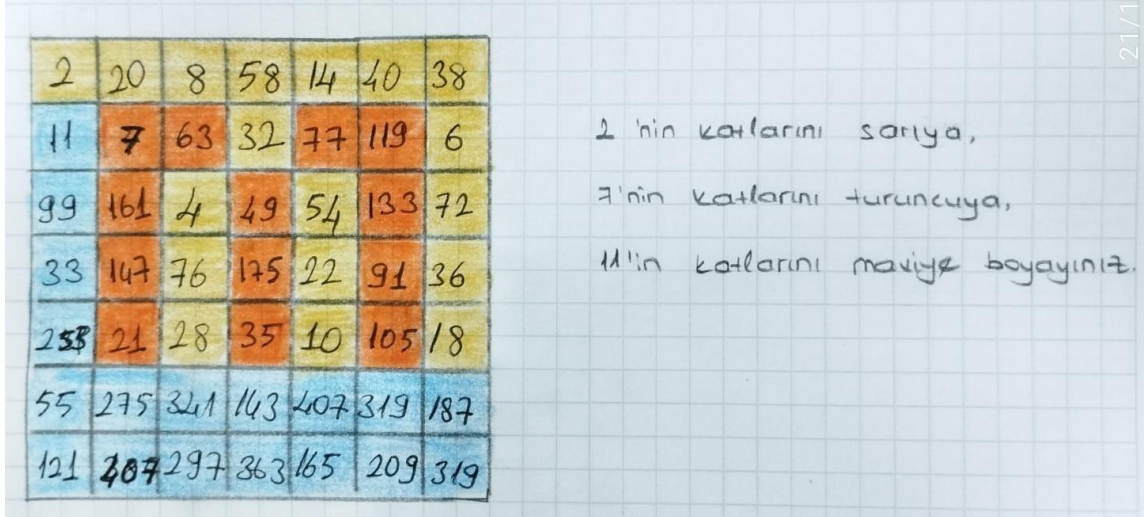 2 20 8 58 14 40 38
11 7 63 32 77 119 6
99 161 4 49 54 133 72
33 147 76 175 22 91 36
253 21 28 35 10 105 18
55 275 341 143 407 319 187
121 407 297 363 165 209 319
2'nin katlarını sarıya,
7'nin katlarını turuncuya,
11'in katlarını maviye boyayınız.
21/1